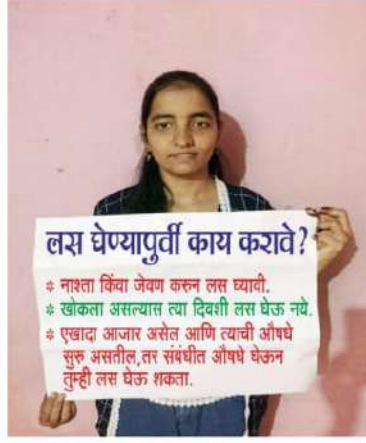 लस घेण्यापुर्वी काय करावे?
* नाश्ता किंवा जेवण करुन लस घ्यावी.
* खोकला असल्यास त्या दिवशी लस घेऊ नये.
* एखादा आजार असेल आणि त्याची औषधे
सुरु असतील,तर संबंधीत औषधे घेऊन
तुम्ही लस घेऊ शकता.